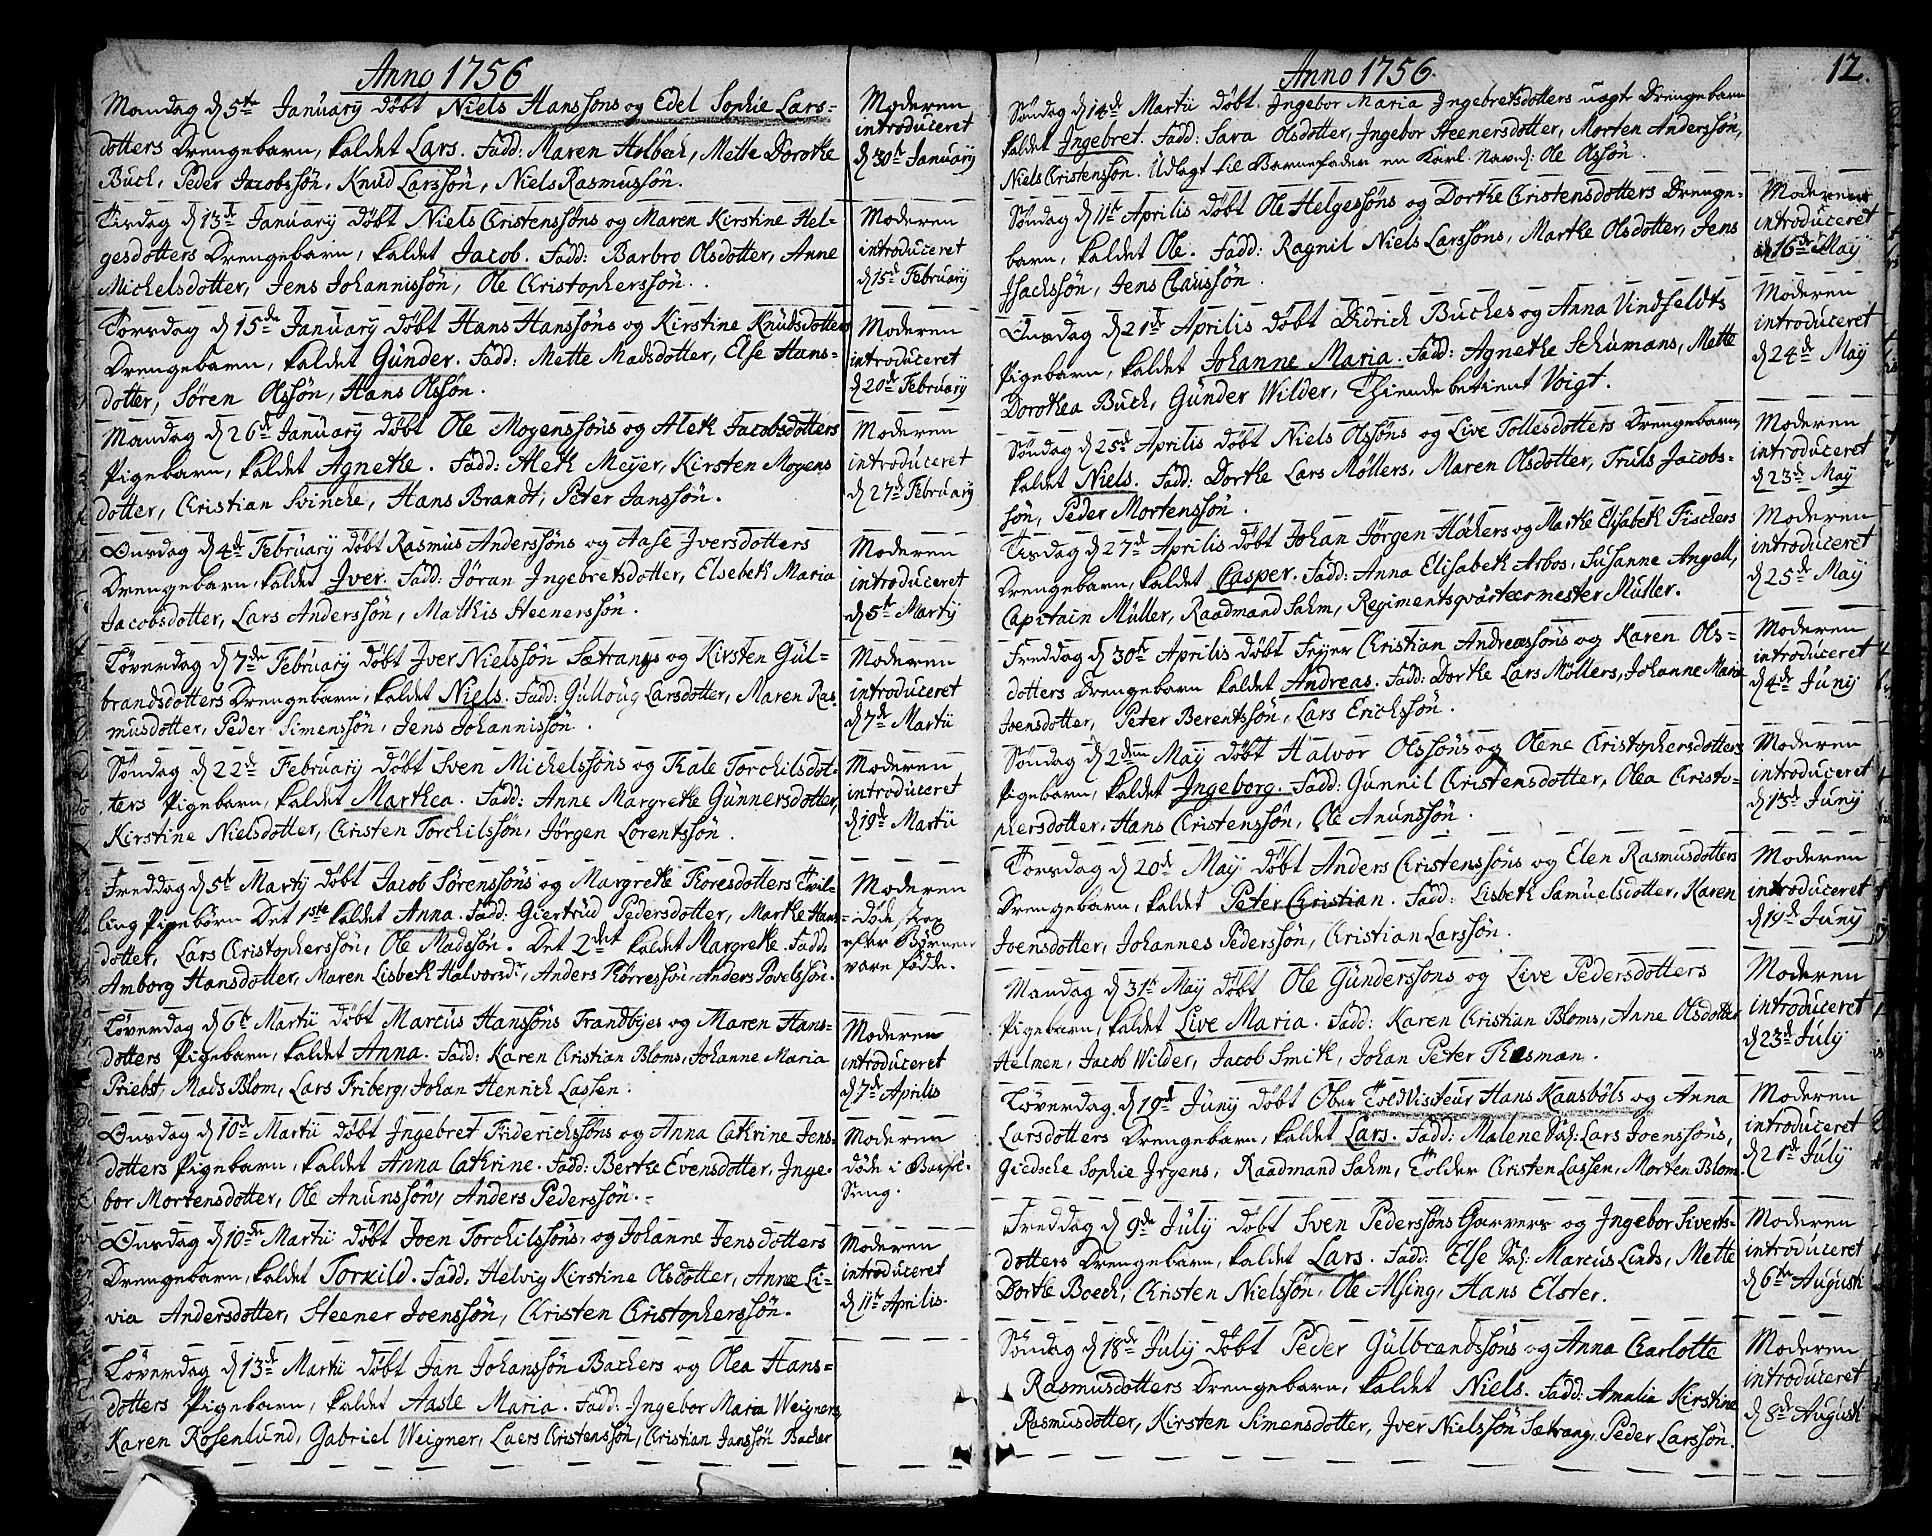 Anno 1756
Mandag d 5te Januarij döbt Niels Hanssöns og Edel Sophie Lars-
dotters Drengebarn, kaldet Lars. Fadd: Maren Holbech, Mette Dorothe
Buch, Peder Jacobssön, Knud Larssön, Niels Rasmussön.
Moderen
introduceret
d 30te Januarij
Tirsdag d 13de Januarij döbt Niels Christenssöns og Maren Kirstine Hel-
gesdotters Drengebarn, kaldet Jacob. Fadd: Barbro Olsdotter, Anne
Michelsdotter, Jens Johannissön, Ole Christopherssön.
Moderen
introduceret
d 15de Februarij
Torsdag d 15de Januarij döbt Hans Hanssöns og Kirstine Knudsdotters
Drengebarn, kaldet Gunder. Fadd: Mette Madsdotter, Else Hans-
dotter, Sören Olssön, Hans Olssön.
Moderen
introduceret
d 20de Februarij
Mandag d 26de Januarij döbt Ole Mogenssöns og Aleth Jacobsdotters
Pigebarn, kaldet Agnethe. Fadd: Aleth Meyer, Kirsten Mogens
dotter, Christian Svinche, Hans Brandt, Peter Janssön.
Moderen
introduceret
d 27de Februarij
Onsdag d 4de Februarij döbt Rasmus Anderssöns og Aase Jversdotters
Drengebarn, kaldet Jver. Fadd: Jöran Jngebretsdotter, Elsebeth Maria
Jacobsdotter, Lars Anderssön, Mathis Steenerssön.
Moderen
introduceret
d 5te Martij
Löverdag d 7de Februarij döbt Jver Nielssön Sætrangs og Kirsten Gul-
brandsdotters Drengebarn, kaldet Niels. Fadd: Gulloug Larsdotter, Maren Ras-
musdotter, Peder Simenssön, Jens Johannissön.
Moderen
introduceret
d 7de Martii
Söndag d 22de Februarij döbt Sven Michelssöns og Thale Torchilsdot-
ters Pigebarn, kaldet Marthea. Fadd: Anne Margrethe Gunnersdotter,
Kirstine Nielsdotter, Christen Torchilssön, Jörgen Lorentssön.
Moderen
introduceret
d 19de Martii
Freddag d 5te Martij döbt Jacob Sörenssöns og Margrethe Thoresdotters Tvil-
ling Pigebörn Det 1ste kaldet Anna. Fadd: Giertrud Pedersdotter, Marthe Hans-
dotter, Lars Christopherssön, Ole Madssön. Det 2det kaldet Margrethe. Fadd:
Amborg Hansdotter, Maren Lisbeth Halvorsdr, Anders Thörressön, Anders Povelssön.
Moderen
döde strax
efter Börnene
vare födde.
Löverdag d 6te Martii döbt Marcus Hanssöns Trandbyes og Maren Hans-
dotters Pigebarn, kaldet Anna. Fadd: Karen Christian Bloms, Johanne Maria
Priebst, Mads Blom, Lars Friberg, Johan Henrich Lassen.
Moderen
introduceret
d 7de Aprilis
Onsdag d 10de Martii döbt Jngebret Friderichssöns og Anna Cathrine Jens-
dotters Pigebarn, kaldet Anna Cathrine. Fadd: Berthe Evensdotter, Jnge-
bor Mortensdotter, Ole Anunssön, Anders Pederssön.
Moderen
döde i Barsel-
Seng.
Onsdag d 10de Martii döbt Joen Torchilssöns, og Johanne Jensdotters
Drengebarn, kaldet Torkild. Fadd: Helvig Kirstine Olsdotter, Anne Li-
via Andersdotter, Steener Joenssön, Christen Christopherssön.
Moderen
introduceret
d 11te Aprilis.
Löverdag d 13de Martii döbt Jan Johanssön Bachers og Olea Hans-
dotters Pigebarn, kaldet Aasle Maria. Fadd: Jngebor Maria Weigners,
Karen Rosenlund, Gabriel Weigner, Laers Christenssön, Christian Janssön Bacher
Anno 1756
12.
Söndag d 14de Martii döbt Jngebor Maria Jngebretsdotters uægte Drengebarn
kaldet Jngebret. Fadd: Sara Olsdotter, Jngebor Steenersdotter, Morten Anderssön,
Niels Christenssön. Udlagt til Barnefader en Karl Navnl: Ole Olssön.
Söndag d 11te Aprilis döbt Ole Helgessöns og Dorthe Christensdotters Drenge-
barn, kaldet Ole. Fadd: Ragnil Niels Larssöns, Marthe Olsdotter, Jens
Jsachssön, Jens Claussön.
Moderen
introduceret
d 16de May
Onsdag d 21de Aprilis döbt Didrich Buches og Anna Vindfeldts
Pigebarn, kaldet Johanne Maria. Fadd: Agnethe Schumans, Mette
Dorothea Buch, Gunder Wilder, Thiende betient Voigt.
Moderen
introduceret
d 24de May
Söndag d 25de Aprilis döbt Niels Olssöns og Live Tollesdotters Drengebarn,
kaldet Niels. Fadd: Dorthe Lars Möllers, Maren Olsdotter, Truls Jacobs-
sön, Peder Mortenssön.
Moderen
introduceret
d 23de May
Tisdag d 27de Aprilis döbt Johan Jörgen Höchers og Marthe Elisabeth Fischers
Drengebarn, kaldet Casper. Fadd: Anna Elisabeth Arbos, Susanne Angell,
Capitain Müller, Raadmand Sahm, Regimentsqvarteermester Müller.
Moderen
introduceret
d 25de May
Freddag d 30te Aprilis döbt Feyer Christian Andreæssöns og Karen Ols-
dotters Drengebarn kaldet Andreas. Fadd: Dorthe Lars Möllers, Johanne Maria
Joensdotter, Peter Berentssön, Lars Erichssön.
Moderen
introduceret
d 4de Junij
Söndag d 2den May döbt Halvor Olssöns og Olene Christophersdotters
Pigebarn, kaldet Jngeborg. Fadd: Gunnil Christensdotter, Olea Christo-
phersdotter, Hans Christenssön, Ole Anunssön.
Moderen
introduceret
d 13de Junij
Torsdag d 20de May döbt Anders Christenssöns og Elen Rasmusdotters
Drengebarn, kaldet Peter Christian. Fadd: Lisbeth Samuelsdotter, Karen
Joensdotter, Johannes Pederssön, Christian Larssön.
Moderen
introduceret
d 19de Junij
Mandag d 31te May döbt Ole Gunderssöns og Live Pedersdotters
Pigebarn, kaldet Live Maria. Fadd: Karen Christian Bloms, Anne Olsdotter
Helmen, Jacob Wilder, Jacob Smith, Johan Peter Thesman.
Moderen
introduceret
d 23de July
Löverdag d 19de Junij döbt Ober Told Visiteur Hans Kaasböls og Anna
Larsdotters Drengebarn, kaldet Lars. Fadd: Malene Sal: Lars Joenssöns,
Giedsche Sophie Jrgens, Raadmand Sahm, Tolder Christen Lassen, Morten Blom.
Moderen
introduceret
d 21de July
Freddag d 9de July döbt Sven Pederssöns Garvers og Jngebor Siverts-
dotters Drengebarn, kaldet Lars. Fadd: Else Sal: Marcus Linds, Mette
Dorthe Boech, Christen Nielssön, Ole Alsing, Hans Elster.
Moderen
introduceret
d 6te Augusti
Söndag d 18de July döbt Peder Gulbrandssöns og Anna Charlotte
Rasmusdotters Drengebarn, kaldet Niels. Fadd: Amalia Kirstine
Rasmusdotter, Kirsten Simensdotter, Jver Nielssön Sætrang, Peder Larssön.
Moderen
introduceret
d 8de Augusti